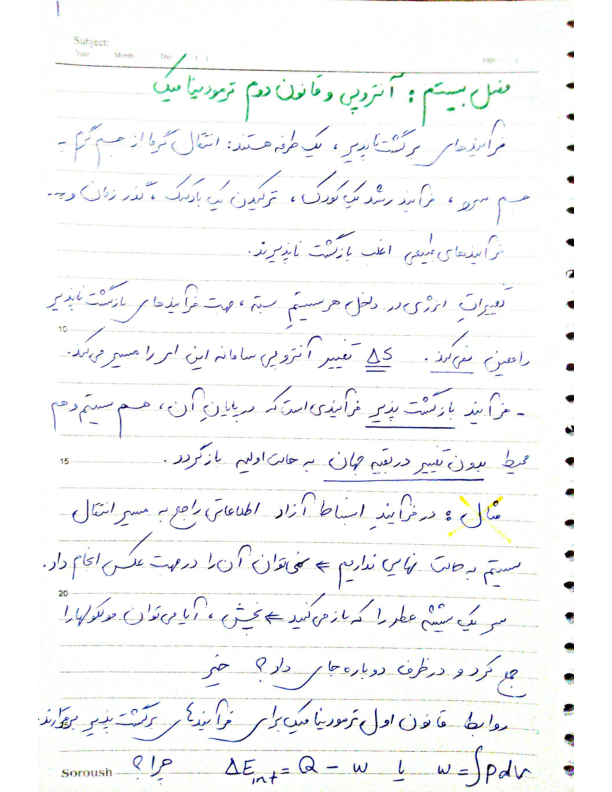 Subject:
Year Month Day page
فصل بیستم : آنتروپی و قانون دوم ترمودینامیک
فرآیندهای برگشت ناپذیر ، یک طرفه هستند: انتقال گرما از جسم گرم -
جسم سرد ، فرآیند رشد یک کودک ، ترکیدن یک بادکنک ، گذر زمان و ...
فرآیندهای طبیعی اغلب بازگشت ناپذیرند.
تغییرات انرژی در داخل هر سیستم بسته ، جهت فرآیندهای بازگشت ناپذیر
10
را معین نمی‌کند . ΔS تغییر آنتروپی سامانه این امر را میسر می‌کند.
- فرآیند بازگشت پذیر فرآیندی است که در پایان آن ، هم سیستم و هم
15
محیط بدون تغییر در بقیه جهان به حالت اولیه بازگردد .
مثال : در فرآیند انبساط آزاد اطلاعاتی راجع به مسیر انتقال
سیستم به حالت نهایی نداریم ⇐ نمی‌توان آن را در جهت عکس انجام داد.
20
سر یک شیشه عطر را که باز می‌کنید ⇐ پخش ، آیا می‌توان مولکولها را
جمع کرد و در ظرف دوباره جای داد؟ خیر
روابط قانون اول ترمودینامیک برای فرآیندهای برگشت پذیر برقرارند.
چرا؟ ΔE_int = Q - W یا W = ∫PdV
Soroush